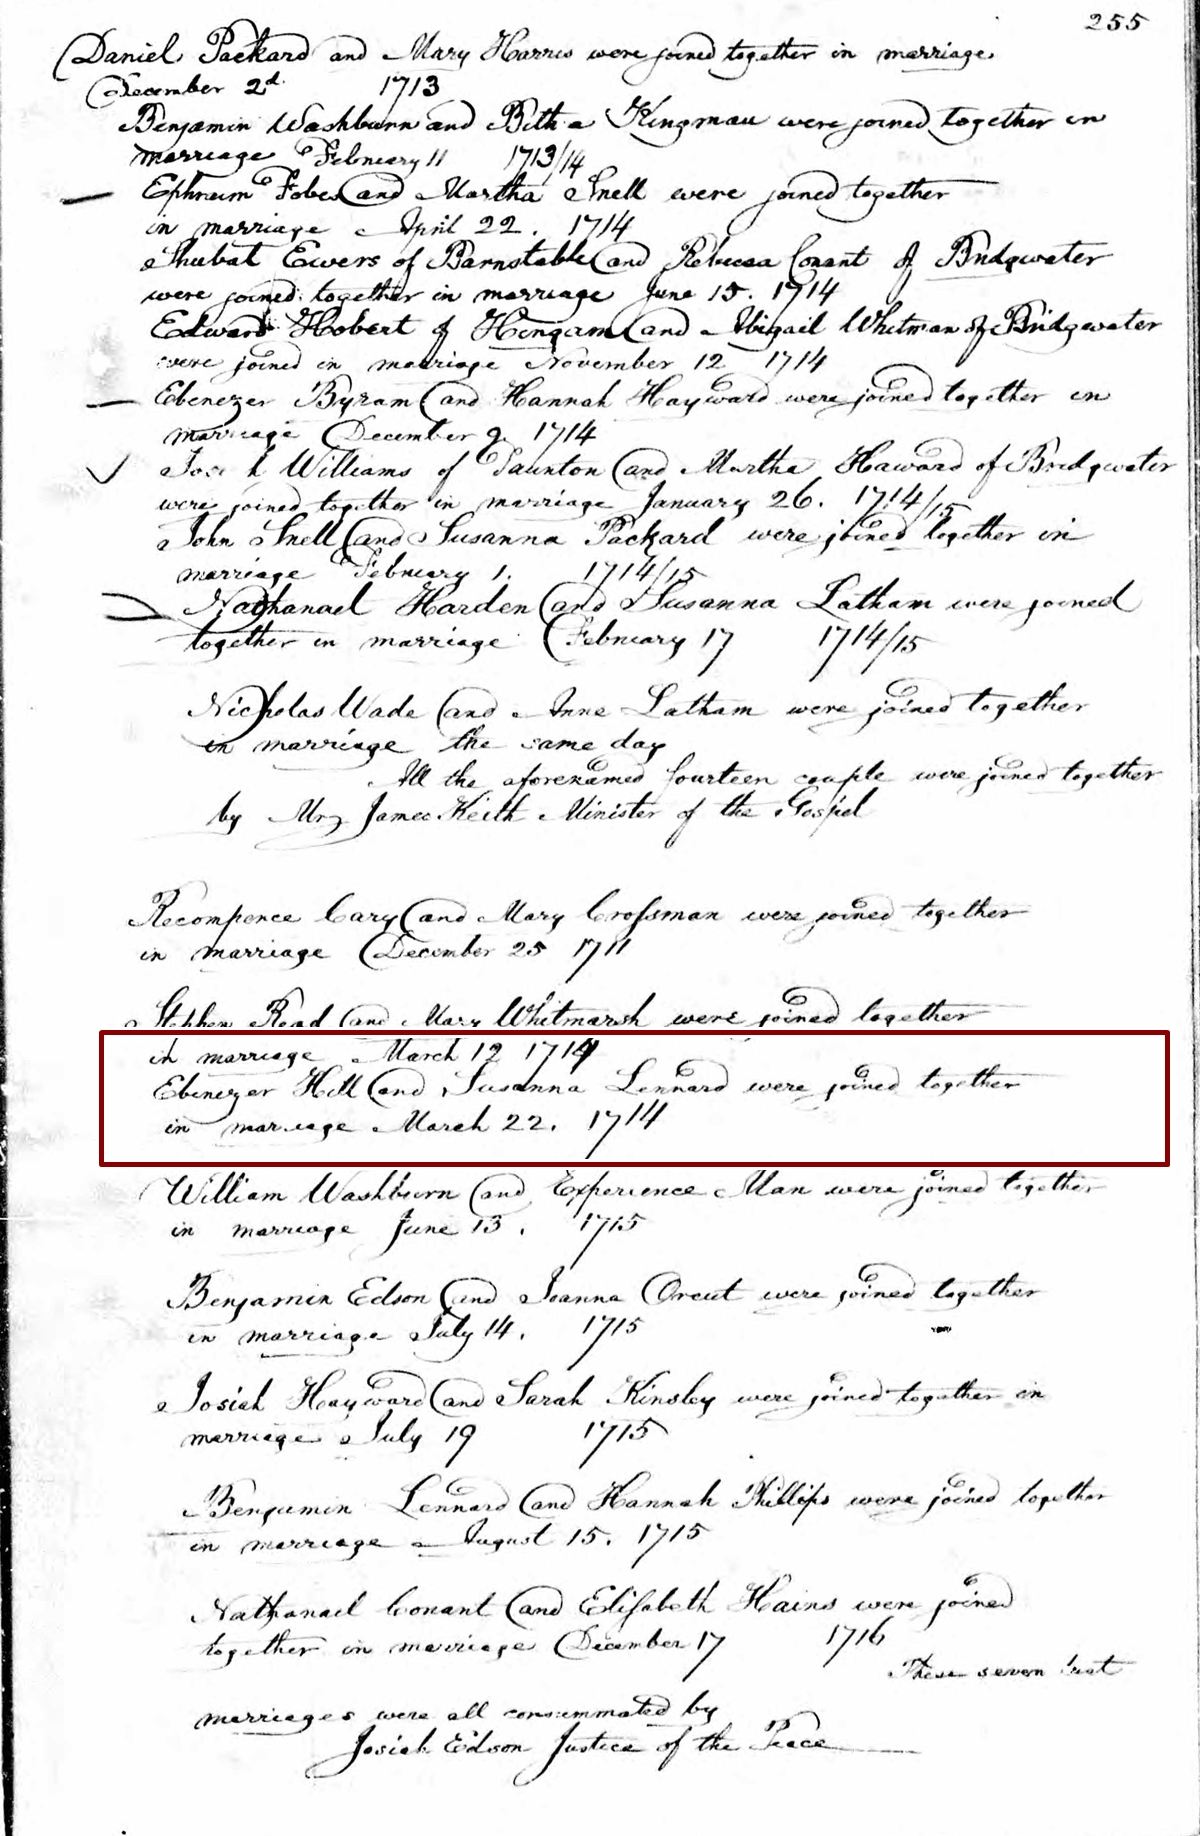 255
Daniel Packard and Mary Harris were joined together in marriage
December 2d 1713
Benjamin Washburn and Bitha Kingman were joined together in
marriage February 11 1713/14
Ephraim Fobes and Martha Snell were joined together
in marriage April 22. 1714
Shubal Ewers of Barnstable and Rebecca Conant of Bridgwater
were joined together in marriage June 15. 1714
Edward Hobert of Hingam and Abigail Whitman of Bridgwater
were joined in marriage November 12 1714
Ebenezer Byram and Hannah Hayward were joined together in
marriage December 9 1714
Williams of Taunton and Martha Haward of Bridgwater
were joined together in marriage January 26. 1714/15
John Snell and Susanna Packard were joined together in
marriage February 1. 1714/15
Nathanael Harden and Susanna Latham were joined
together in marriage February 17 1714/15
Nicholas Wade and Anne Latham were joined together
in marriage the same day
All the aforenamed fourteen couple were joined together
by Mr James Keith Minister of the Gospel
Recompence Cary and Mary Crossman were joined together
in marriage December 25 1711
Stephen Read and Mary Whitmarsh were joined together
in marriage March 12 1714
Ebenezer Hill and Susanna Lennard were joined together
in marriage March 22. 1714
William Washburn and Experience Man were joined together
in marriage June 13. 1715
Benjamin Edson and Joanna Orcut were joined together
in marriage July 14. 1715
Josiah Hayward and Sarah Kinsley were joined together in
marriage July 19 1715
Benjamin Lennard and Hannah Phillips were joined together
in marriage August 15. 1715
Nathanael Conant and Elisabeth Hains were joined
together in marriage December 17 1716
These seven last
marriages were all consummated by
Josiah Edson Justice of the Peace